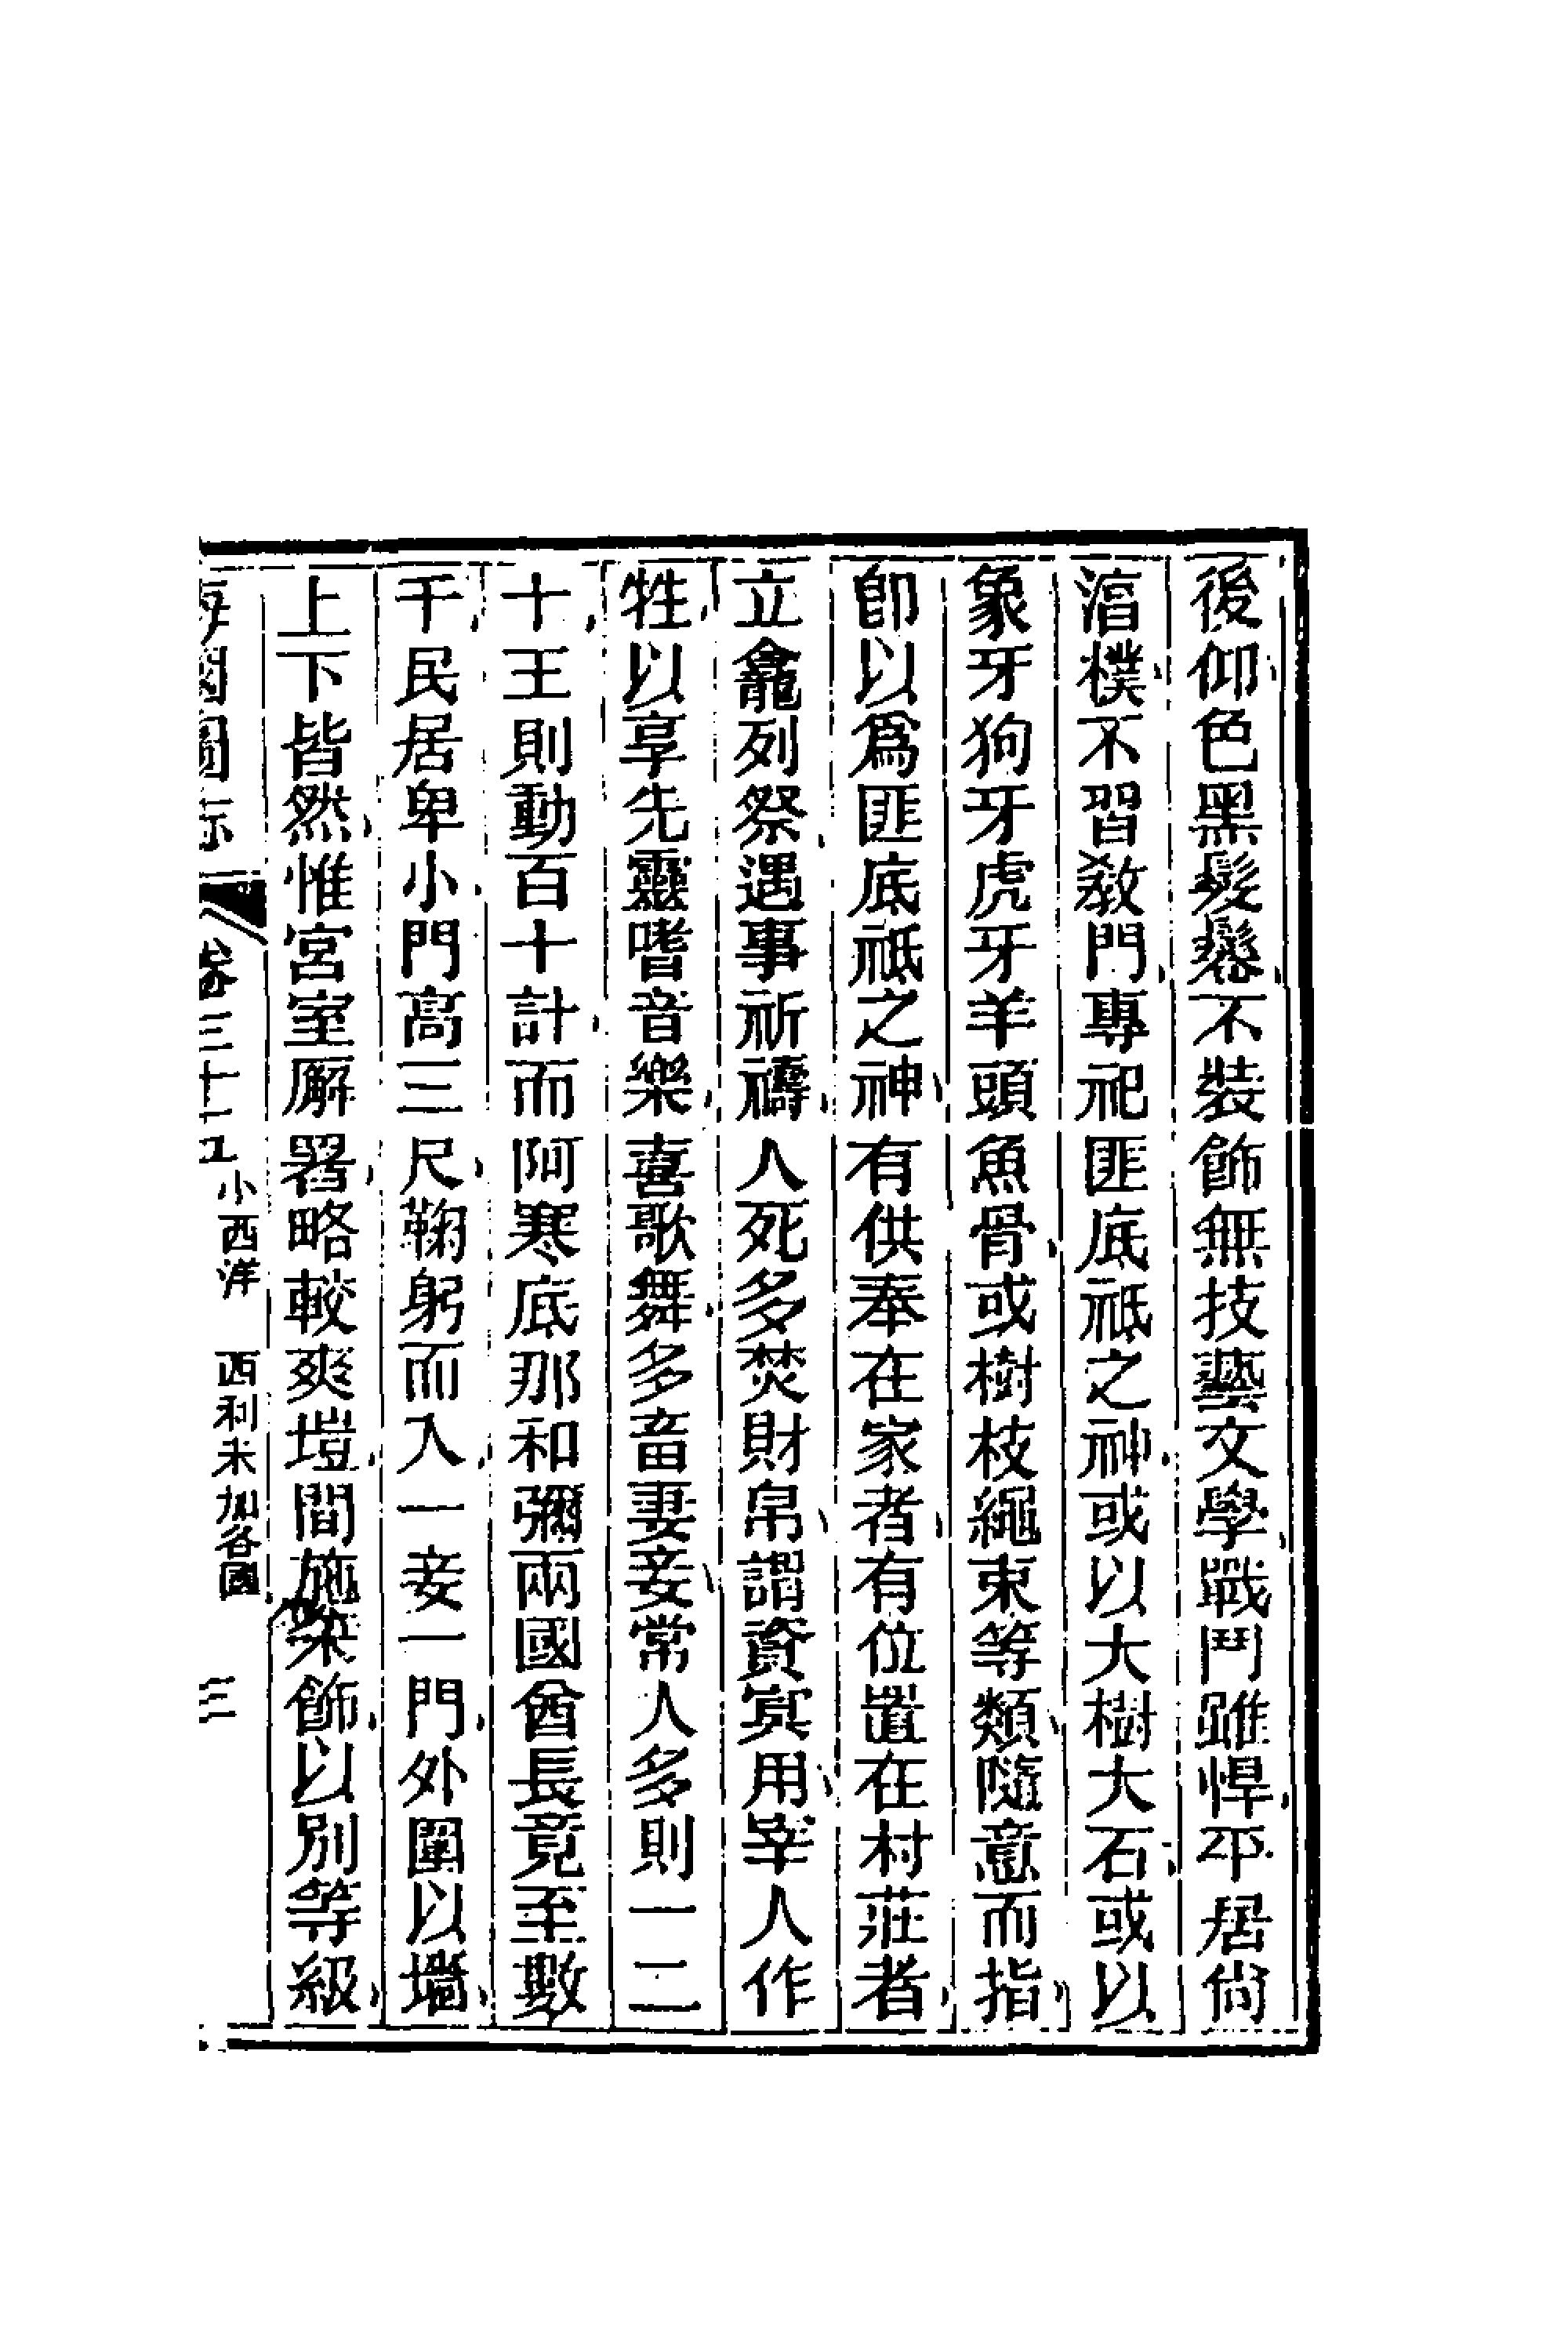 後仰色黑髮鬈不裝飾無技藝文學戰鬥雖悍平居尙
渞樸不習敎門專祀匪底祗之神或以大樹大石或以
象牙狗牙虎牙羊頭魚骨或樹枝繩束等類隨意而指
卽以爲匪底祗之神有供奉在家者有位置在村莊者
立龕列祭遇事祈禱人死多焚財帛謂資冥用宰人作
牲以享先靈嗜音樂喜歌舞多畜妻妾常人多則一二
十王則動百十計而阿寒底那和彌兩國酋長竟至數
千民居卑小門高三尺鞠躬而入一妾一門外圍以墻
上下皆然惟宮室廨署略較爽塏間施采飾以別等級
海國圖志 卷三十五 小西洋 西利未加各國 三